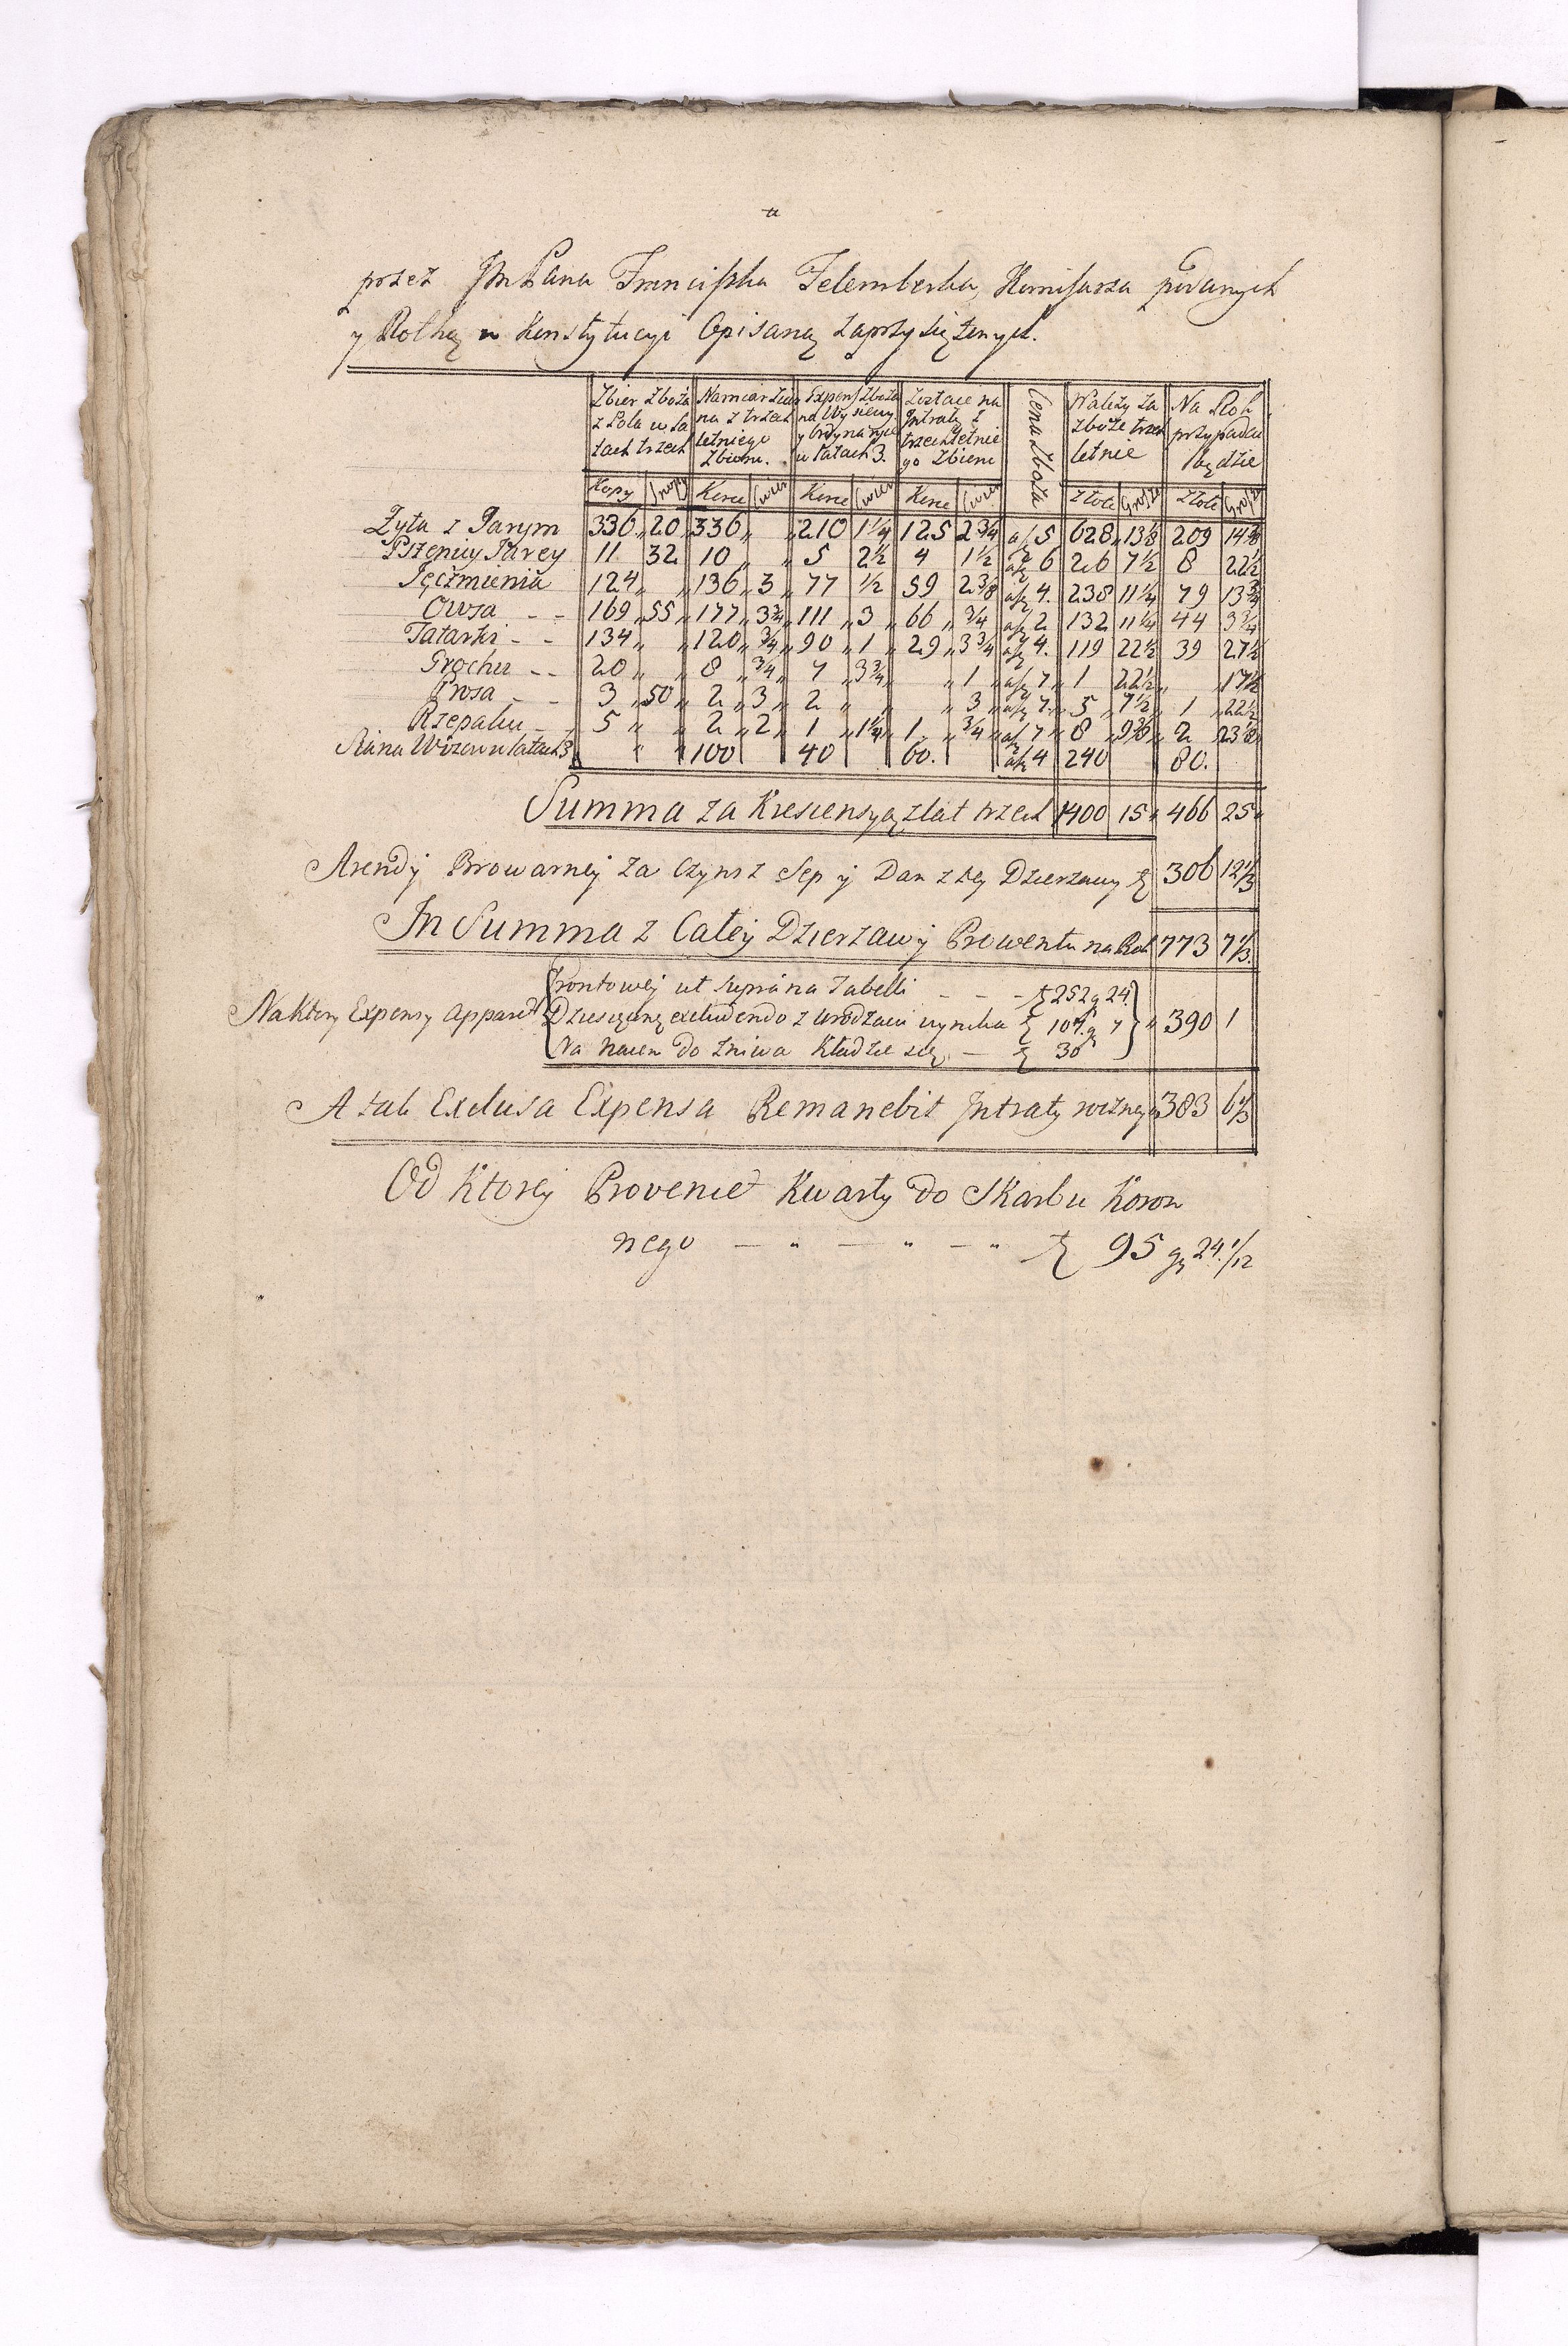 przez JmPana Franciszka Felemberka, Komisarza podanych
y Rothą w Konstytucyi Opisaną zaprzysiężonych.
Zbior Zboża z Pola w Latach trzech | Namiar Ziarna z trzech letniego Zbioru. | Expens Zboża na Wysiewy y Ordynarye w Latach 3. | Zostaie na Intratę z trzechletniego Zbioru | Cena Zboża | Należy za zboże trzechletnie | Na Rok przypadać będzie
Kopy | Snopy | Korce | Cwier | Korce | Cwier | Korce | Cwier | Złote | Grosze | Złote | Grosze
Zyta z Jarym 336 „ 20 „ 336 „ „ 210 1¼ 125 2¾ a fl 5 628 „ 13⅛ 209 14⅜
Pszenicy Jarey 11 32 10 „ „ 5 2½ 4 1½ a fl 6 26 7½ 8 22½
Jęczmienia 124 „ „ 136 „ 3 „ 77 ½ 59 2⅜ a fl 4. 238 11¼ 79 13¾
Owsa - - 169 „ 55 „ 177 „ 3¾ „ 111 „ 3 „ 66 „ ¾ a fl 2 132 11¼ 44 3¾
Tatarki - - 134 „ „ 120 „ ¾ „ 90 „ 1 „ 29 „ 3¾ a fl 4. 119 22½ 39 27½
Grochu - - 20 „ „ 8 „ ¾ „ 7 „ 3¾ „ „ 1 „ a fl 7 „ 1 22½ „ „ 17½
Prosa - - 3 „ 50 „ 2 „ 3 „ 2 „ „ „ 3 „ a fl 7 „ 5 „ 7½ „ 1 „ 22½
Rzepaku - 5 „ „ 2 „ 2 „ 1 „ 1¼ „ 1 „ ¾ „ a fl 7 „ 8 „ 9⅜ „ 2 23⅛
Siana Wozow w latach 3 „ „ 100 40 60. a fl 4 240 80.
Summa za Krescensyą z lat trzech 1400 15 „ 466 25 „
Arendy Browarney za Czynsz Sep y Dan z tey Dzierzawy fl 306 12⅓
In Summa z Całey Dzierzawy Prowentu na Rok 773 7⅓.
Na Ktory Expensy apparet
Gontowey ut supra na Tabelli - - - fl 252 g 24.
Dziesięcinę excludendo z urodzaiu wynika fl 107. g 7 „ 390 1
Na Naiem do żniwa Kładzie się - fl 30
A tak Exclusa Expensa Remanebit Intraty roczney 383 6⅓
Od Ktorey Provenit Kwarty do Skarbu Koron
nego — „ — „ — „ fl 95 g 24.1/12